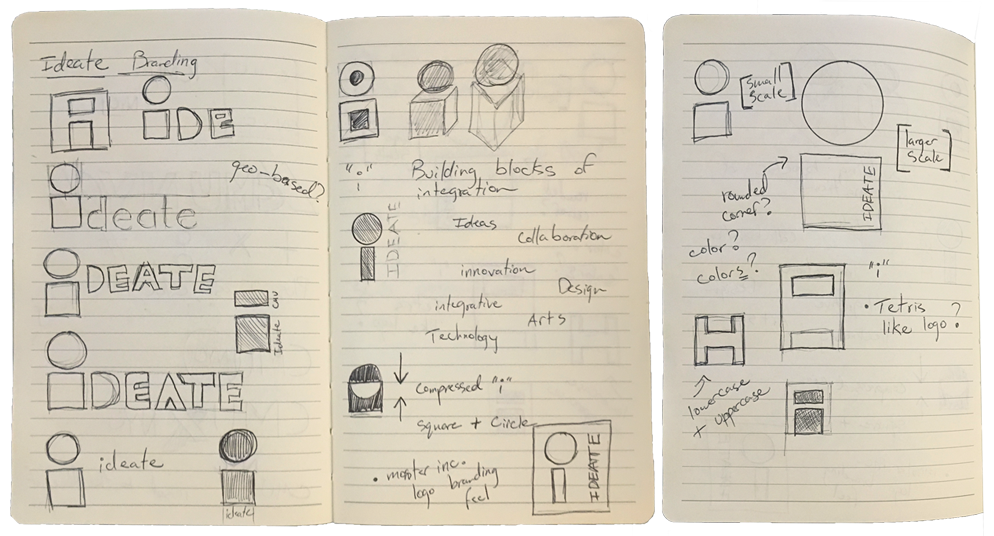 Ideate Branding
iDE
geo-based?
ideate
iDEATE
CMU
Ideate
iDEATE
ideate
ideate
"i"
Building blocks of
integration
IDEATE
Ideas
Collaboration
innovation
Design
integrative
Arts
Technology
Compressed "i"
Square + Circle
• monster inc.
logo branding
feel
IDEATE
[small
scale]
[larger
scale]
rounded
corner?
IDEATE
color?
colors?
"i"
• Tetris
like logo?
lowercase
+ uppercase